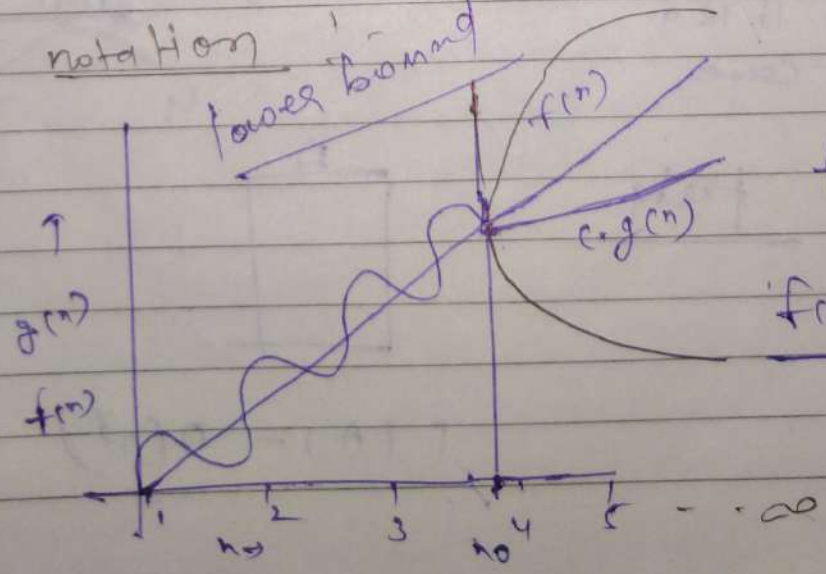 notation :-
lower bound
f(n)
c.g(n)
↑
g(n)
f(n)
f(
1 2 3 4 5 - - ∞
n→ n0